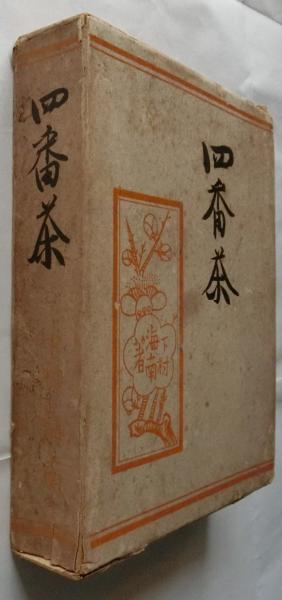 四番茶
四番茶
下村
海南
著